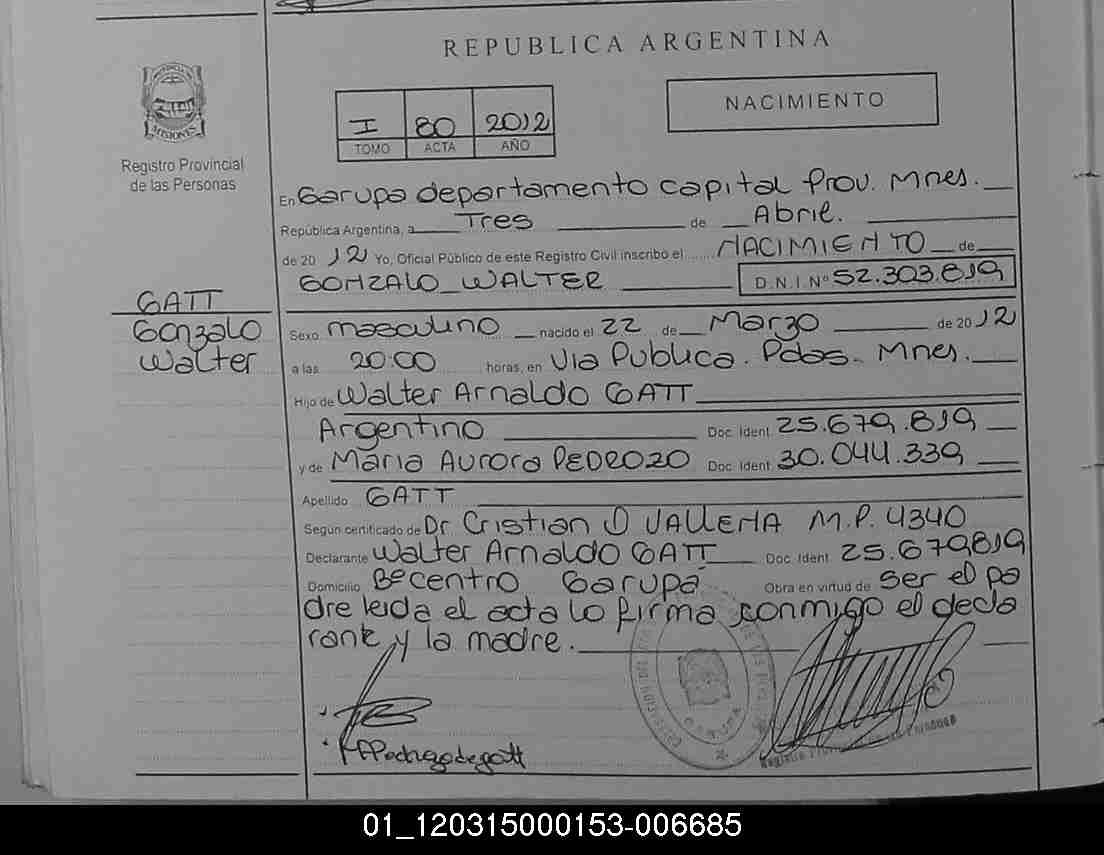 REPUBLICA ARGENTINA
MISIONES
Registro Provincial
de las Personas
I 80 2012
TOMO ACTA AÑO
NACIMIENTO
En Garupa departamento capital Prov. Mnes.
República Argentina, a Tres de Abril.
de 2012 Yo, Oficial Público de este Registro Civil inscribo el NACIMIENTO de
GONZALO WALTER D.N.I.Nº 52.303.819
GATT
Gonzalo
Walter
Sexo masculino nacido el 22 de Marzo de 2012
a las 20:00 horas, en Via Publica. Pdas. Mnes.
Hijo de Walter Arnaldo GATT
Argentino Doc. Ident. 25.679.819
y de Maria Aurora PEDROZO Doc. Ident. 30.044.339
Apellido GATT
Según certificado de Dr Cristian D VALLEHA M.P. 4340
Declarante Walter Arnaldo GATT Doc. Ident. 25.679819
Domicilio Bº centro Garupá Obra en virtud de ser el pa
dre leida el acta lo firma conmigo el decla
rante y la madre.
01_120315000153-006685